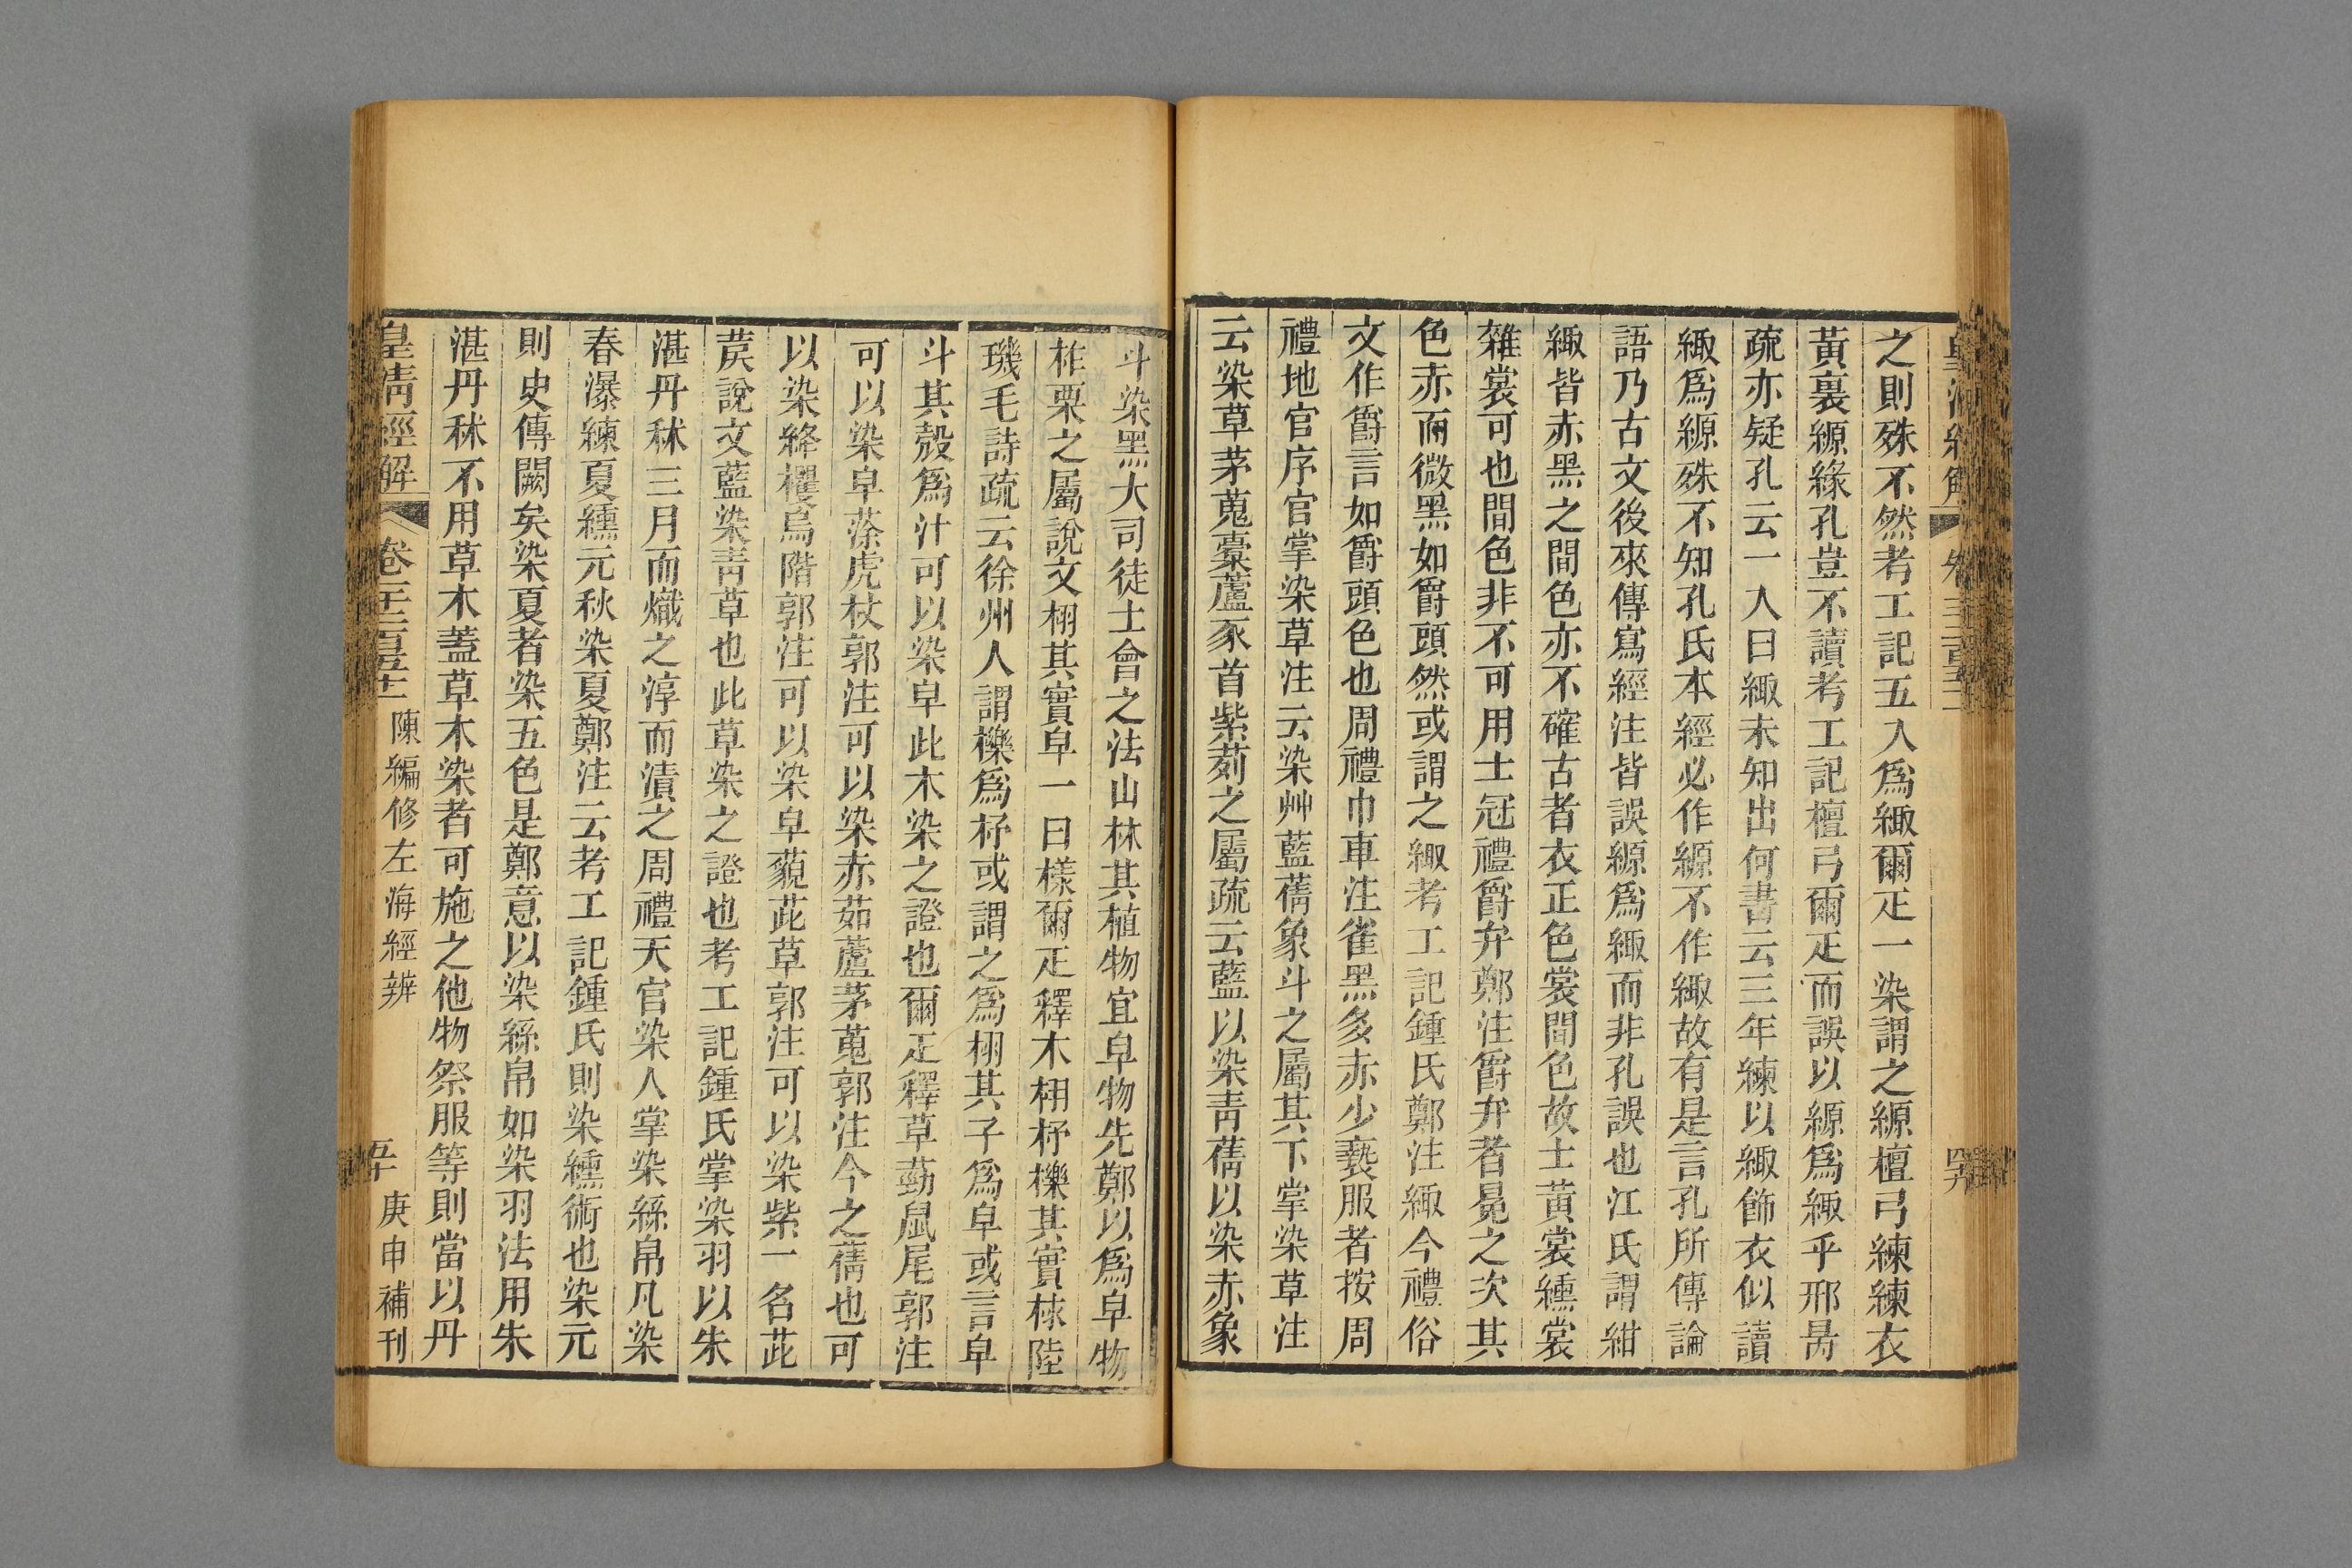 之則殊不然考工記五入爲緅爾疋一染謂之縓檀弓練練衣
黃裏縓緣孔豈不讀考工記檀弓爾疋而誤以縓爲緅乎邢昺
疏亦疑孔云一入曰緅未知出何書云三年練以緅飾衣似讀
緅爲縓殊不知孔氏本經必作縓不作緅故有是言孔所傳論
語乃古文後來傳寫經注皆誤縓爲緅而非孔誤也江氏謂紺
緅皆赤黑之間色亦不確古者衣正色裳間色故士黃裳纁裳
雜裳可也間色非不可用士冠禮爵弁鄭注爵弁者冕之次其
色赤而微黑如爵頭然或謂之緅考工記鍾氏鄭注緅今禮俗
文作爵言如爵頭色也周禮巾車注雀黑多赤少褻服者按周
禮地官序官掌染草注云染艸藍蒨象斗之屬其下掌染草注
云染草茅蒐橐蘆豕首紫茢之屬疏云藍以染青蒨以染赤象
斗染黑大司徒士會之法山林其植物宜皁物先鄭以爲皁物
柞栗之屬說文栩其實皁一曰樣爾疋釋木栩杼櫟其實梂陸
璣毛詩疏云徐州人謂櫟爲杼或謂之爲栩其子爲皁或言皁
斗其殼爲汁可以染皁此木染之證也爾疋釋草葝鼠尾郭注
可以染皁蒤虎杖郭注可以染赤茹蘆茅蒐郭注今之蒨也可
以染絳欔烏階郭注可以染皁藐茈草郭注可以染紫一名茈
䓞說文藍染青草也此草染之證也考工記鍾氏掌染羽以朱
湛丹秫三月而熾之淳而漬之周禮天官染人掌染絲帛凡染
春瀑練夏纁元秋染夏鄭注云考工記鍾氏則染纁術也染元
則史傳闕矣染夏者染五色是鄭意以染絲帛如染羽法用朱
湛丹秫不用草木蓋草木染者可施之他物祭服等則當以丹
皇清經解 卷一千二百五十一 陳編修左海經辨 五十 庚申補刊